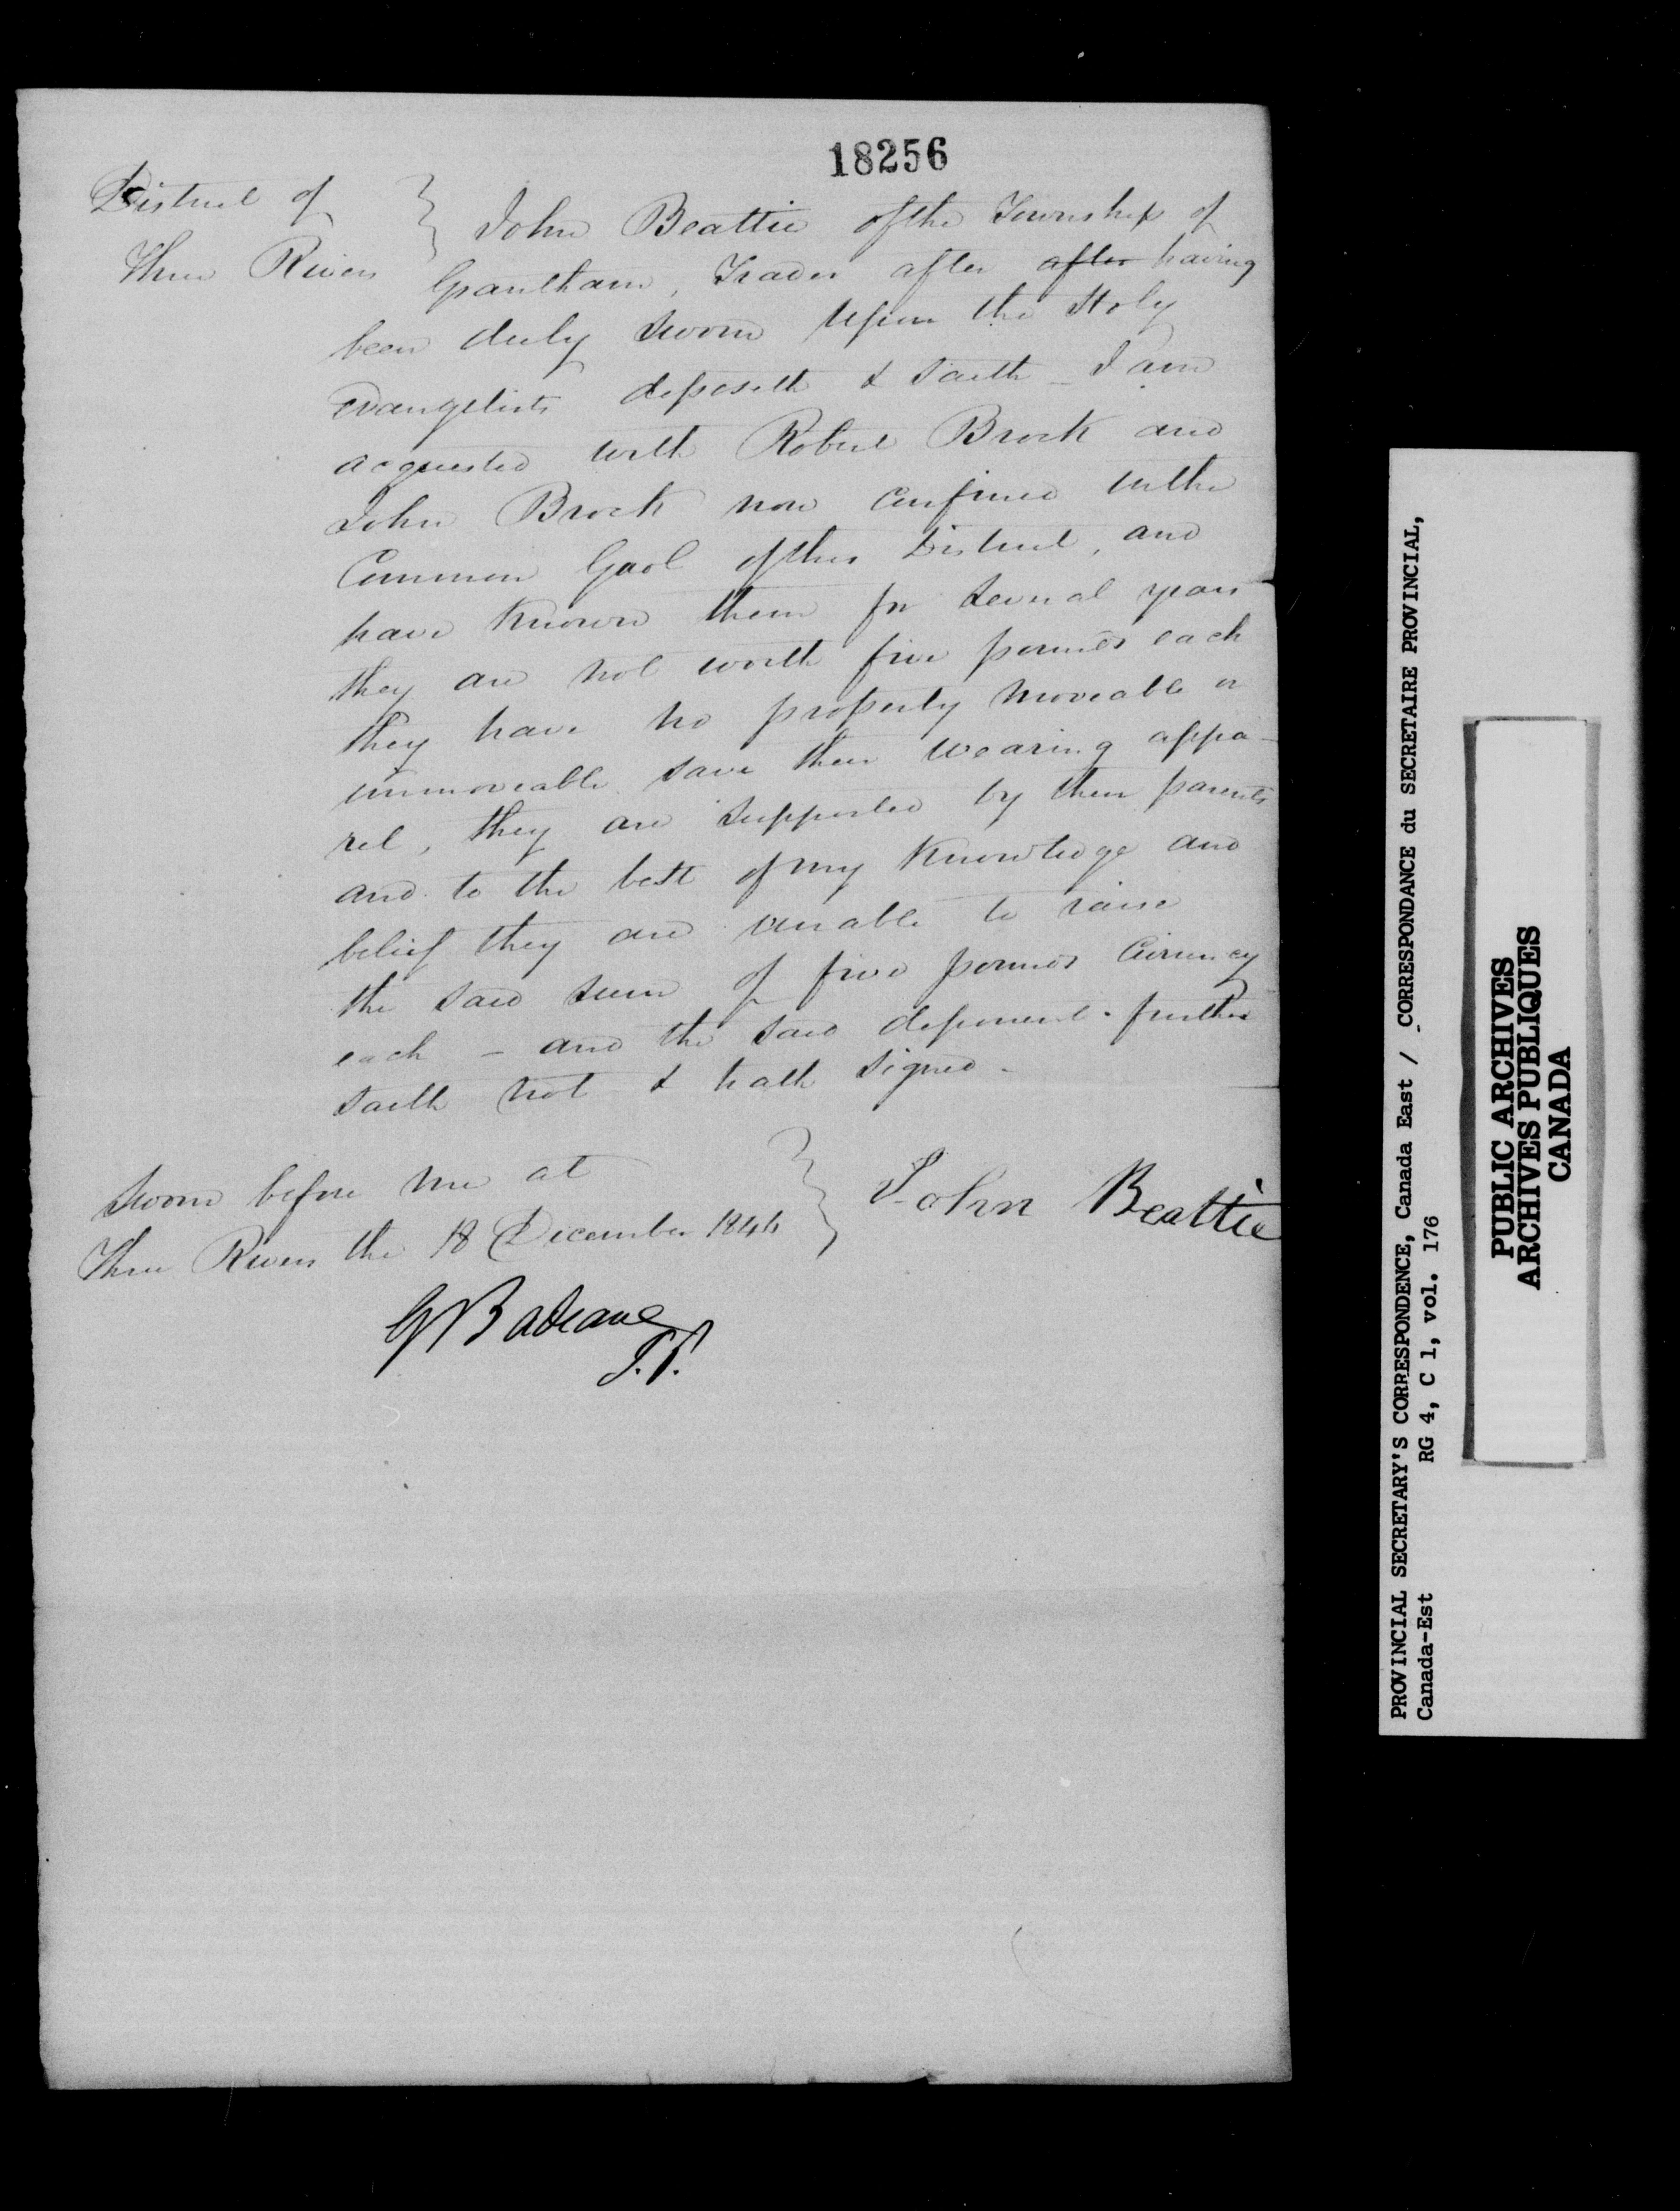 18256
District of
Three Rivers
John Beattie of the Township of
Grantham, Trader after after having
been duly sworn upon the Holy
Evangelists deposeth & saith - I am
acquented with Robert Brock and
John Brock now confined in the
Common Gaol of this District, and
have known them for several years
they are not worth five pounds each
they have no property moveable or
immoveable save their wearing appa-
rel, they are supported by their parents
and to the best of my knowledge and
belief they are unable to raise
the said sum of five pounds Currency
each - and the said deponent further
saith not & hath signed -
Sworn before me at
Three Rivers the 18 December 1846
John Beattie
G Badeaux
J.P.
PROVINCIAL SECRETARY'S CORRESPONDENCE, Canada East / CORRESPONDANCE du SECRETAIRE PROVINCIAL,
Canada-Est RG 4, C 1, vol. 176
PUBLIC ARCHIVES
ARCHIVES PUBLIQUES
CANADA